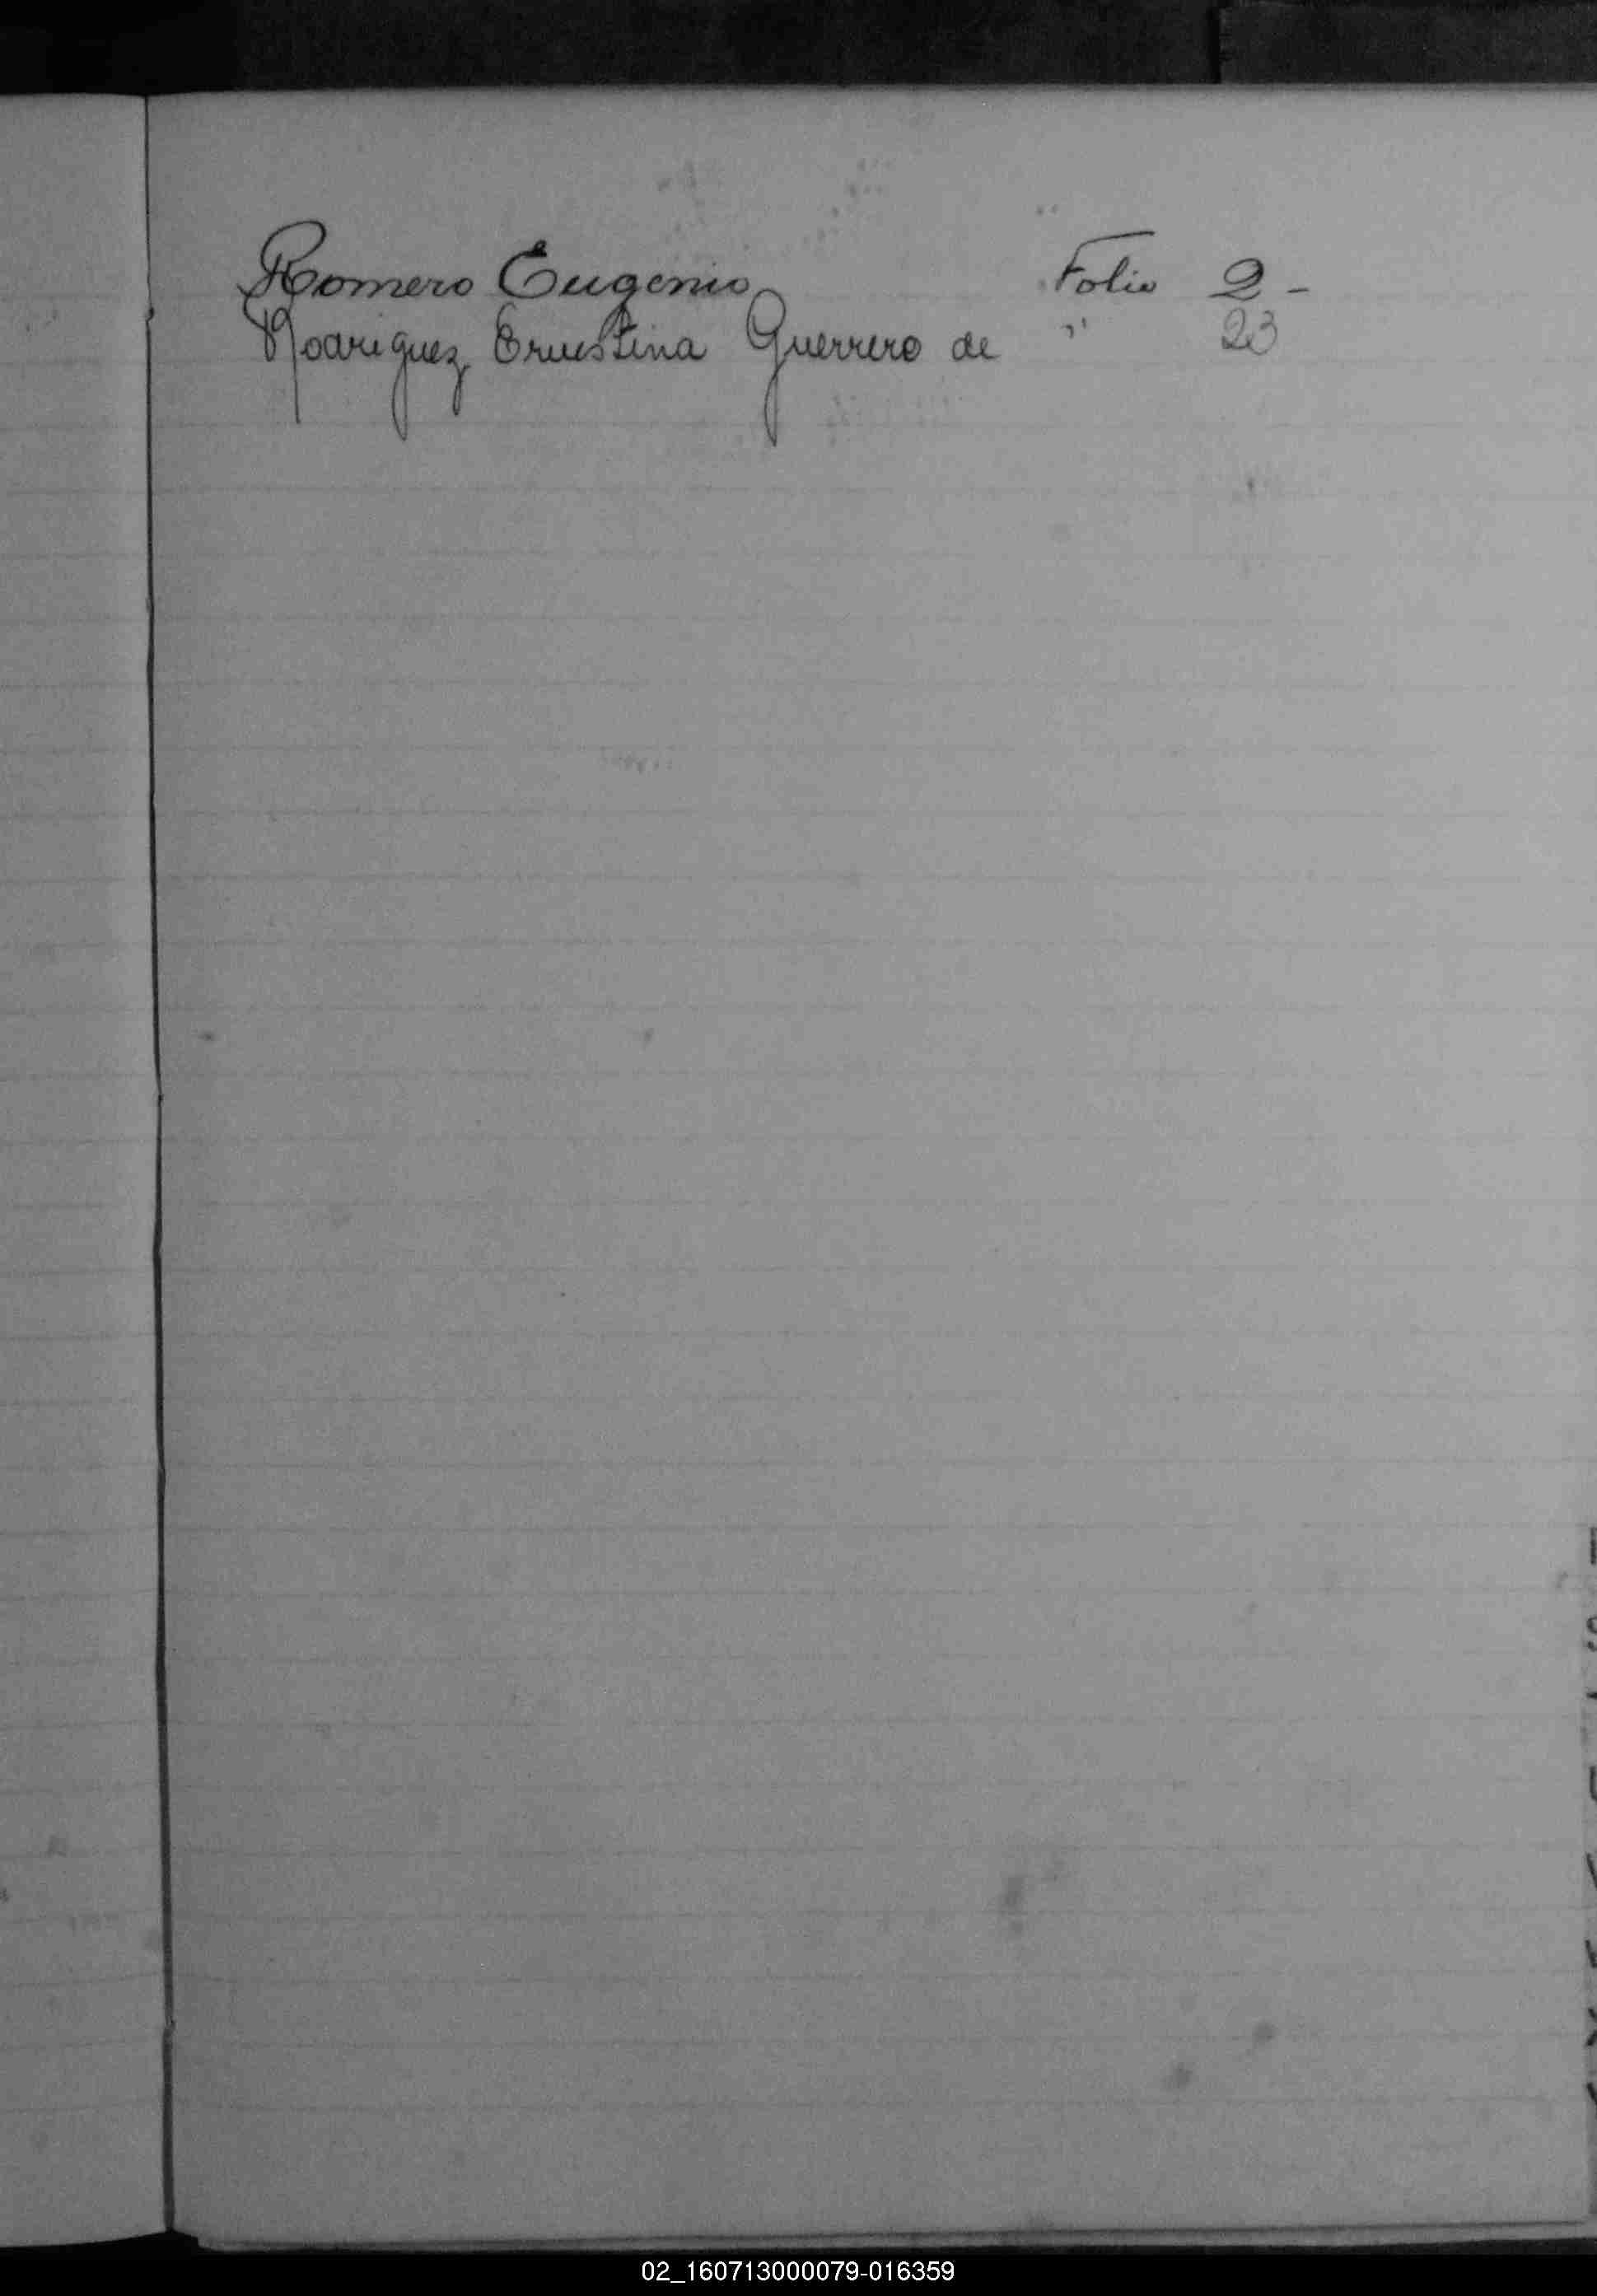 Romero Eugenio Folio 2 -
Rodriguez Ernestina Guerrero de " 23
S
U
V
W
X
Y
02_160713000079-016359